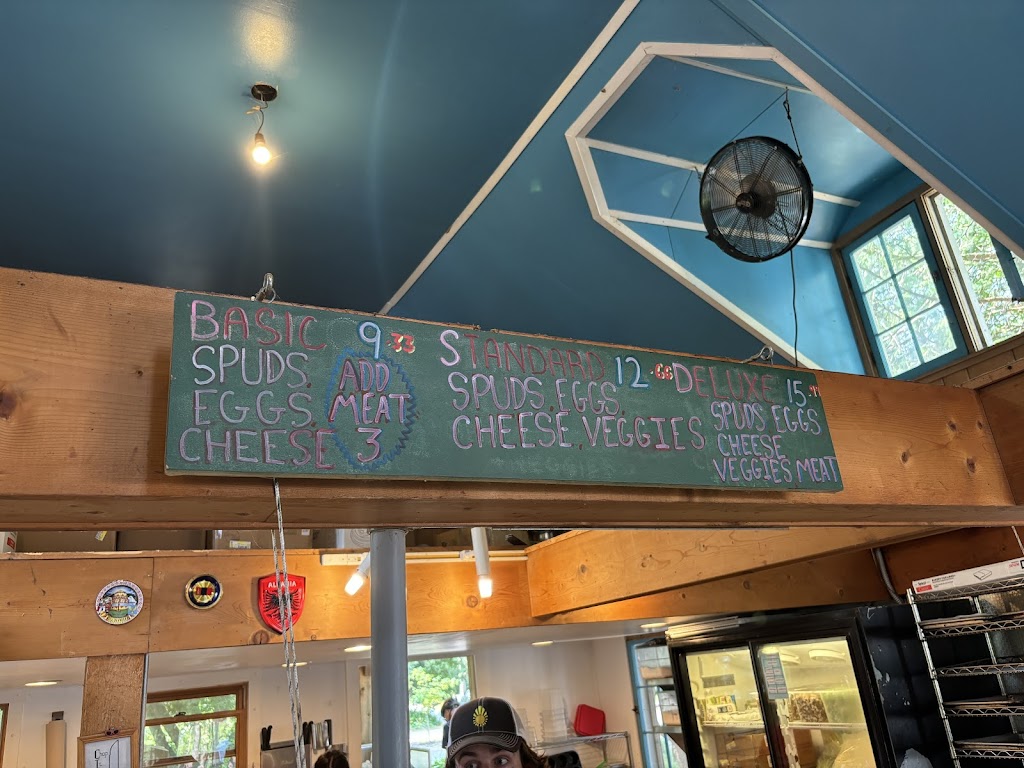 BASIC 9.33
SPUDS,
EGGS,
CHEESE
ADD
MEAT
3
STANDARD 12.66
SPUDS, EGGS,
CHEESE, VEGGIES
DELUXE 15
SPUDS EGGS
CHEESE
VEGGIES MEAT